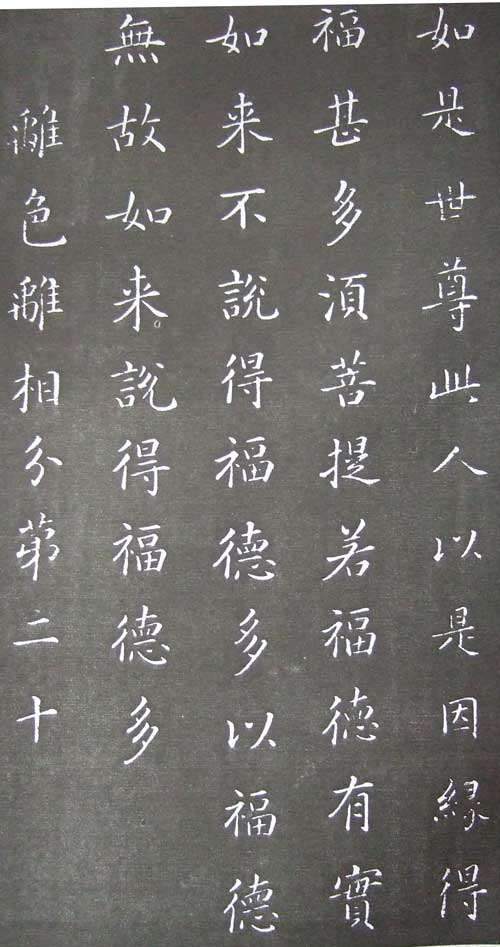 如是世尊此人以是因緣得
福甚多須菩提若福德有實
如来不說得福德多以福德
無故如来說得福德多
離色離相分苐二十